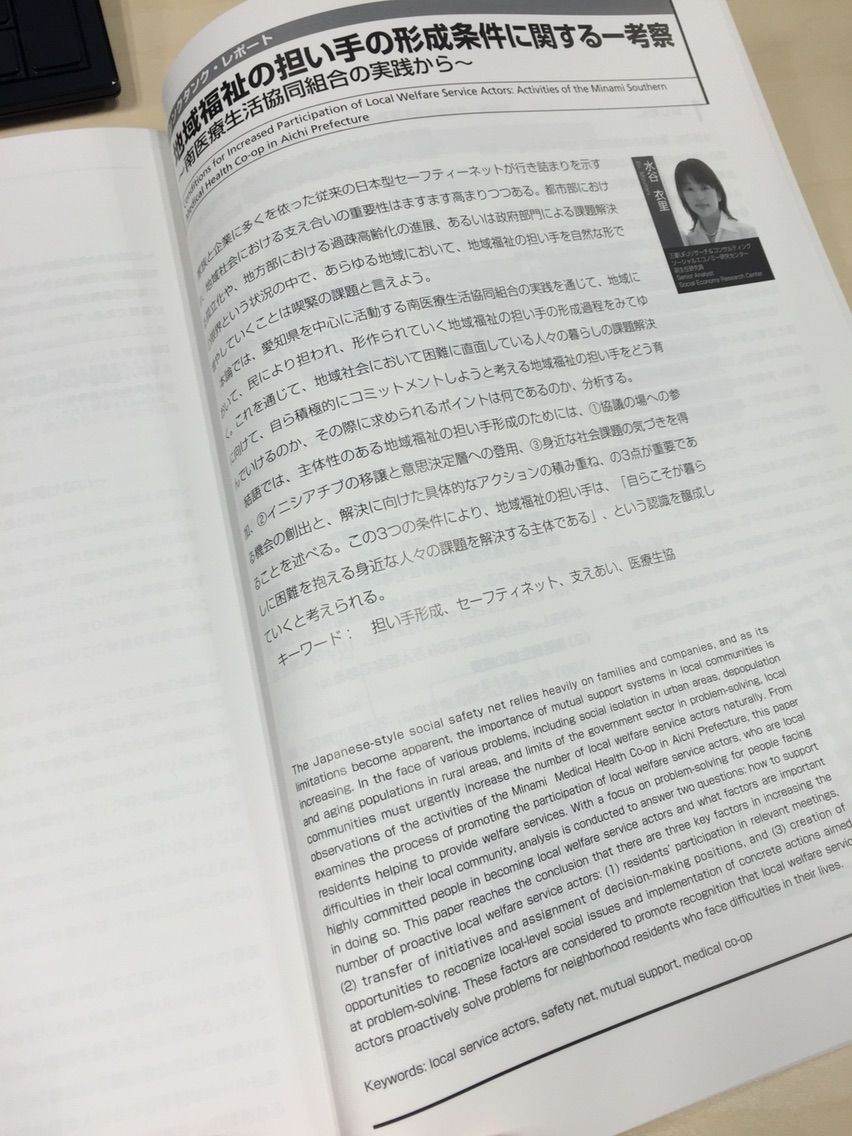 ンクタンク・レポート
地域福祉の担い手の形成条件に関する一考察
～南医療生活協同組合の実践から～
Conditions for Increased Participation of Local Welfare Service Actors: Activities of the Minami Southern
Medical Health Co-op in Aichi Prefecture
水谷 衣里
三菱UFJリサーチ&コンサルティング
ソーシャルエコノミー研究センター
副主任研究員
Senior Analyst
Social Economy Research Center
家族と企業に多くを依った従来の日本型セーフティーネットが行き詰まりを示す
、地域社会における支え合いの重要性はますます高まりつつある。都市部におけ
孤立化や、地方部における過疎高齢化の進展、あるいは政府部門による課題解決
限界という状況の中で、あらゆる地域において、地域福祉の担い手を自然な形で
増やしていくことは喫緊の課題と言えよう。
本論では、愛知県を中心に活動する南医療生活協同組合の実践を通じて、地域に
おいて、民により担われ、形作られていく地域福祉の担い手の形成過程をみてゆ
く。これを通じて、地域社会において困難に直面している人々の暮らしの課題解決
に向けて、自ら積極的にコミットメントしようと考える地域福祉の担い手をどう育
んでいけるのか、その際に求められるポイントは何であるのか、分析する。
結語では、主体性のある地域福祉の担い手形成のためには、①協議の場への参
加、②イニシアチブの移譲と意思決定層への登用、③身近な社会課題の気づきを得
る機会の創出と、解決に向けた具体的なアクションの積み重ね、の3点が重要であ
ることを述べる。この3つの条件により、地域福祉の担い手は、「自らこそが暮ら
しに困難を抱える身近な人々の課題を解決する主体である」、という認識を醸成し
ていくと考えられる。
キーワード： 担い手形成、セーフティネット、支えあい、医療生協
The Japanese-style social safety net relies heavily on families and companies, and as its
limitations become apparent, the importance of mutual support systems in local communities is
increasing. In the face of various problems, including social isolation in urban areas, depopulation
and aging populations in rural areas, and limits of the government sector in problem-solving, local
communities must urgently increase the number of local welfare service actors naturally. From
observations of the activities of the Minami Medical Health Co-op in Aichi Prefecture, this paper
examines the process of promoting the participation of local welfare service actors, who are local
residents helping to provide welfare services. With a focus on problem-solving for people facing
difficulties in their local community, analysis is conducted to answer two questions: how to support
highly committed people in becoming local welfare service actors and what factors are important
in doing so. This paper reaches the conclusion that there are three key factors in increasing the
number of proactive local welfare service actors: (1) residents' participation in relevant meetings,
(2) transfer of initiatives and assignment of decision-making positions, and (3) creation of
opportunities to recognize local-level social issues and implementation of concrete actions aimed
at problem-solving. These factors are considered to promote recognition that local welfare servic
actors proactively solve problems for neighborhood residents who face difficulties in their lives.
Keywords: local service actors, safety net, mutual support, medical co-op